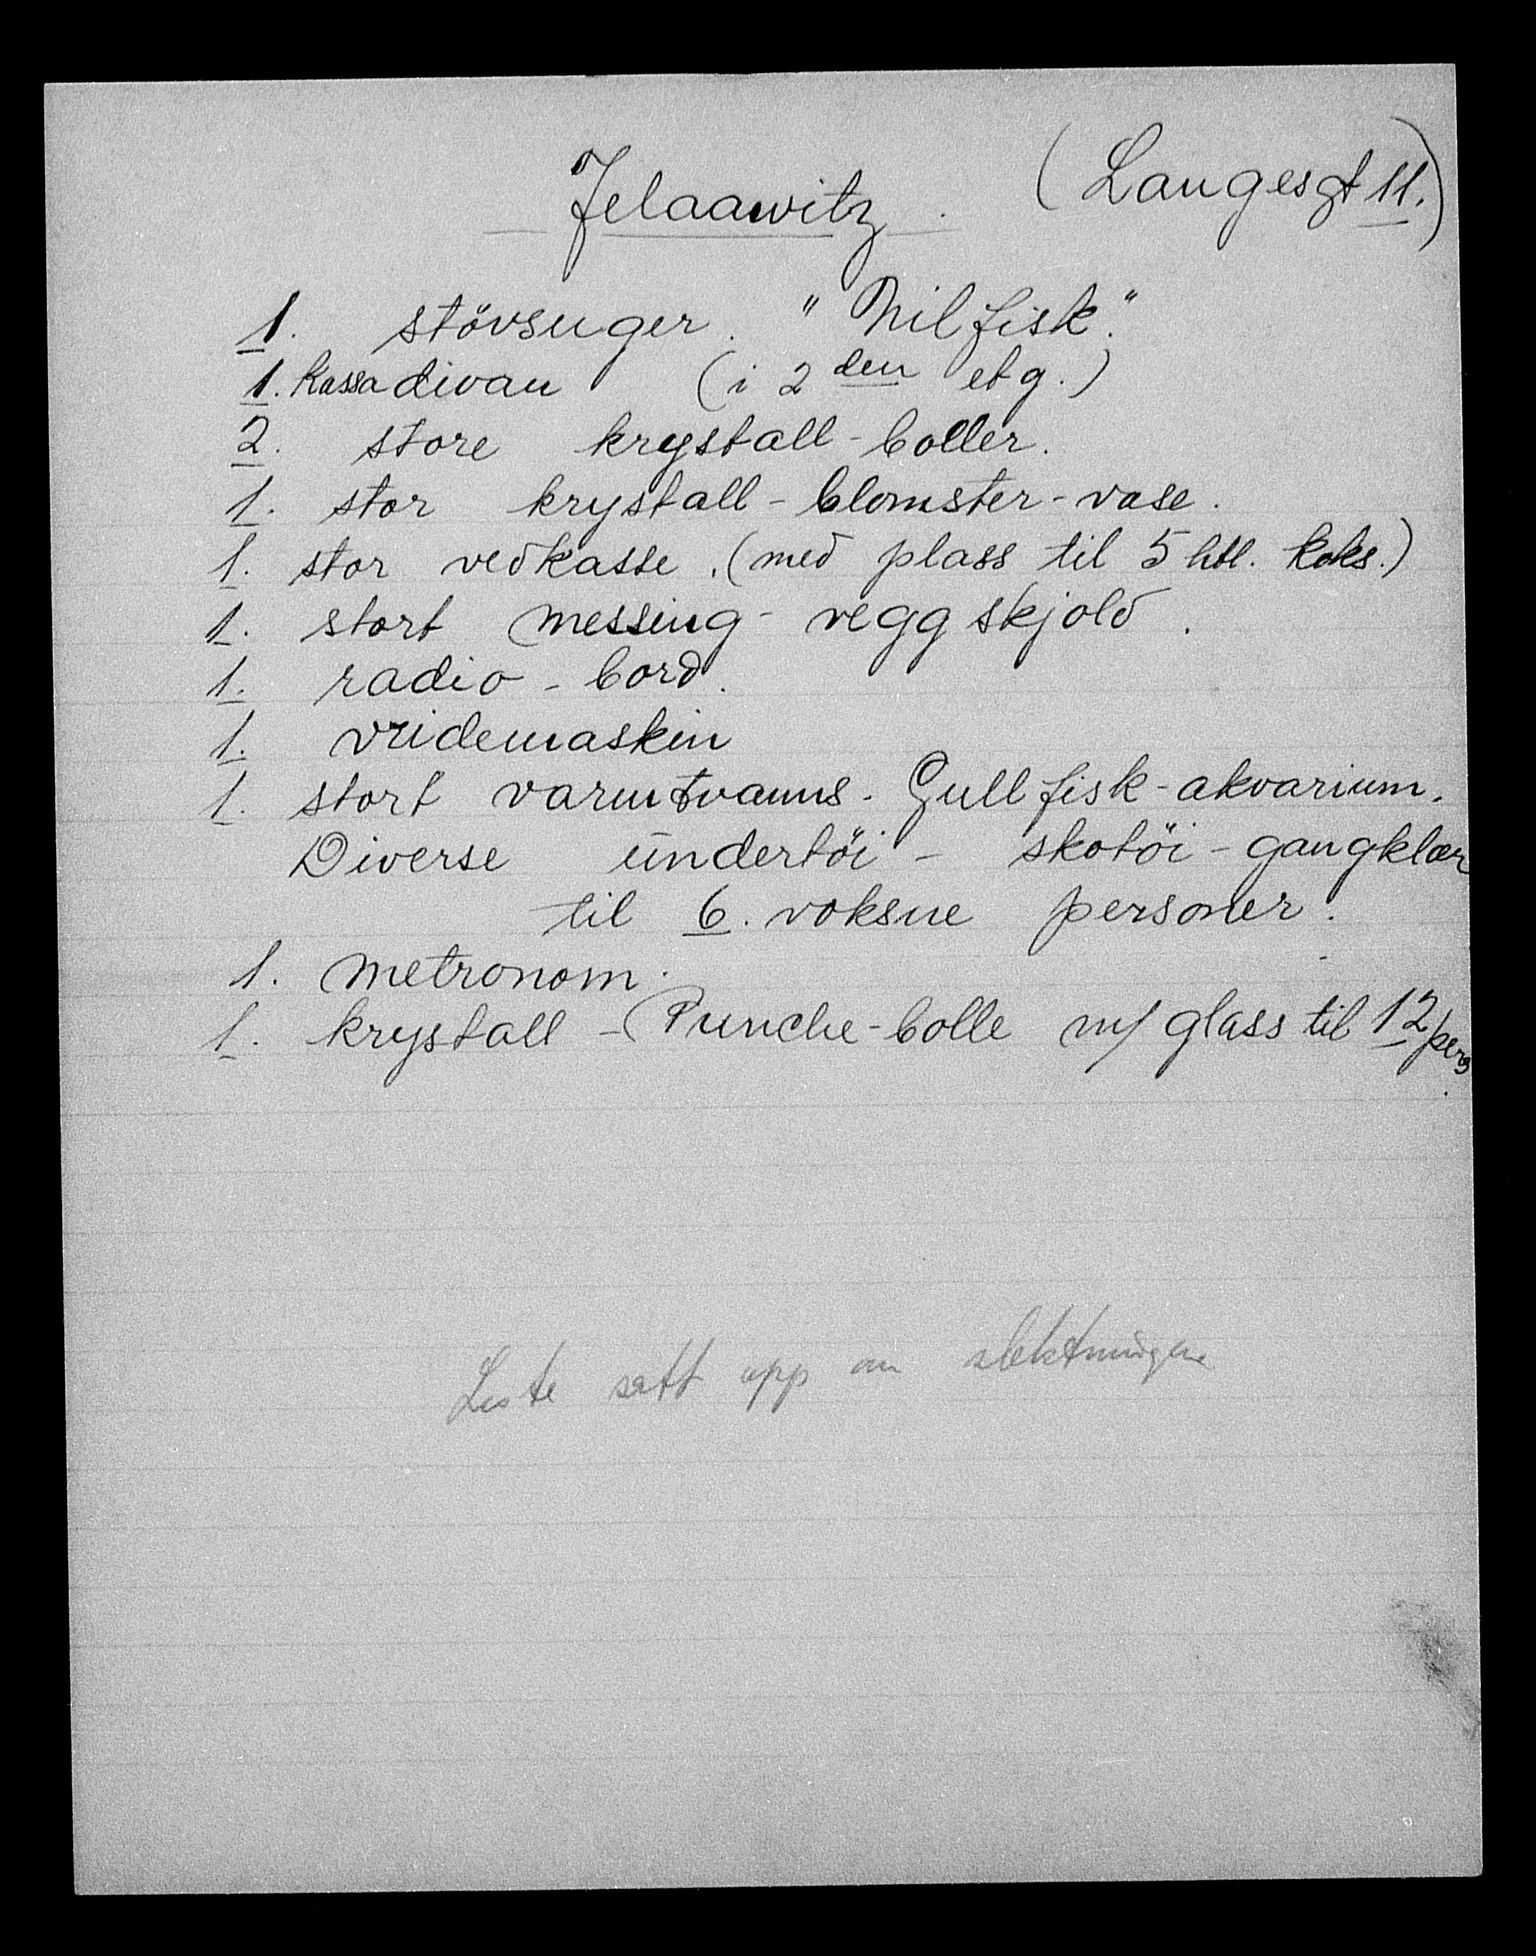 Jelaawitz. (Langesgt 11.)
1. stövsuger. "Nilfisk".
1. Kassadivan (i 2den etg.)
2. store krystall-boller.
1. stor krystall-blomster-vase.
1. stor vedkasse. (med plass til 5 htl. koks.)
1. stort messing-veggskjold.
1. radio-bord.
1. vridemaskin
1. stort varmtvanns-Gullfisk-akvarium.
Diverse undertöi - skotöi - gangklær
til 6. voksne personer.
1. metronom.
1. krystall-Punche-bolle m/ glass til 12 pers.
Liste satt opp av slektningene